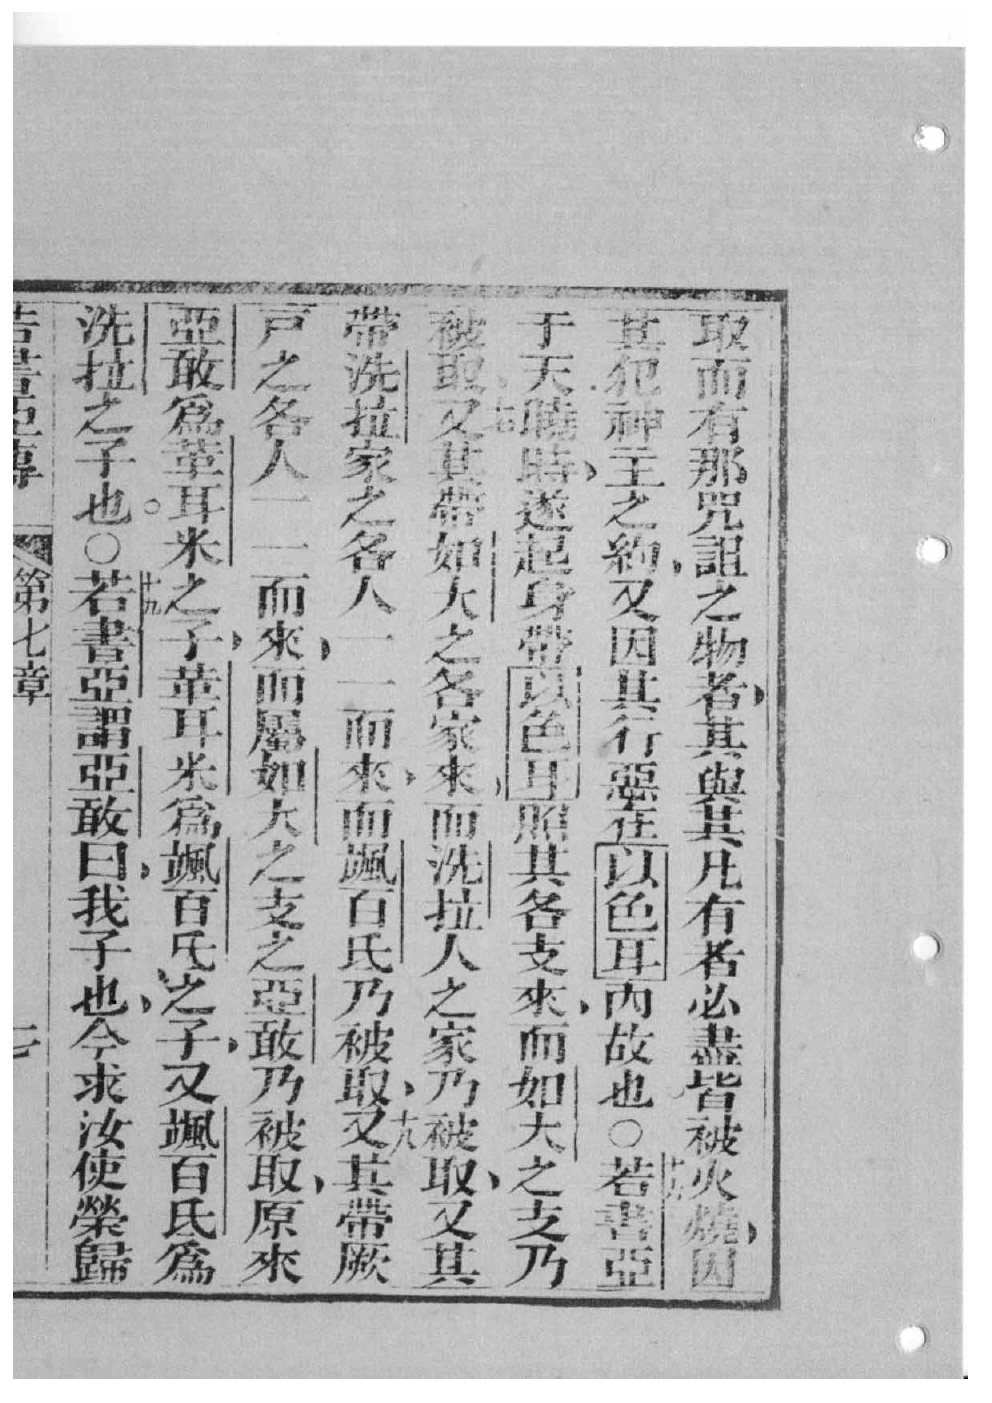 取而有那咒詛之物者其與其凡有者必盡皆被火燒因
其犯神主之約又因其行惡在以色耳內故也○十六若書亞
于天曉時遂起身帶以色耳照其各支來而如大之支乃
被取十七又其帶如大之各家來而洗拉人之家乃被取又其
帶洗拉家之各人一一而來而颯百氏乃被取十八又其帶厥
戶之各人一一而來而屬如大之支之亞敢乃被取原來
亞敢為革耳米之子革耳米為颯百氏之子又颯百氏為
洗拉之子也○十九若書亞謂亞敢曰我子也今求汝使榮歸
若書亞傳 第七章 七